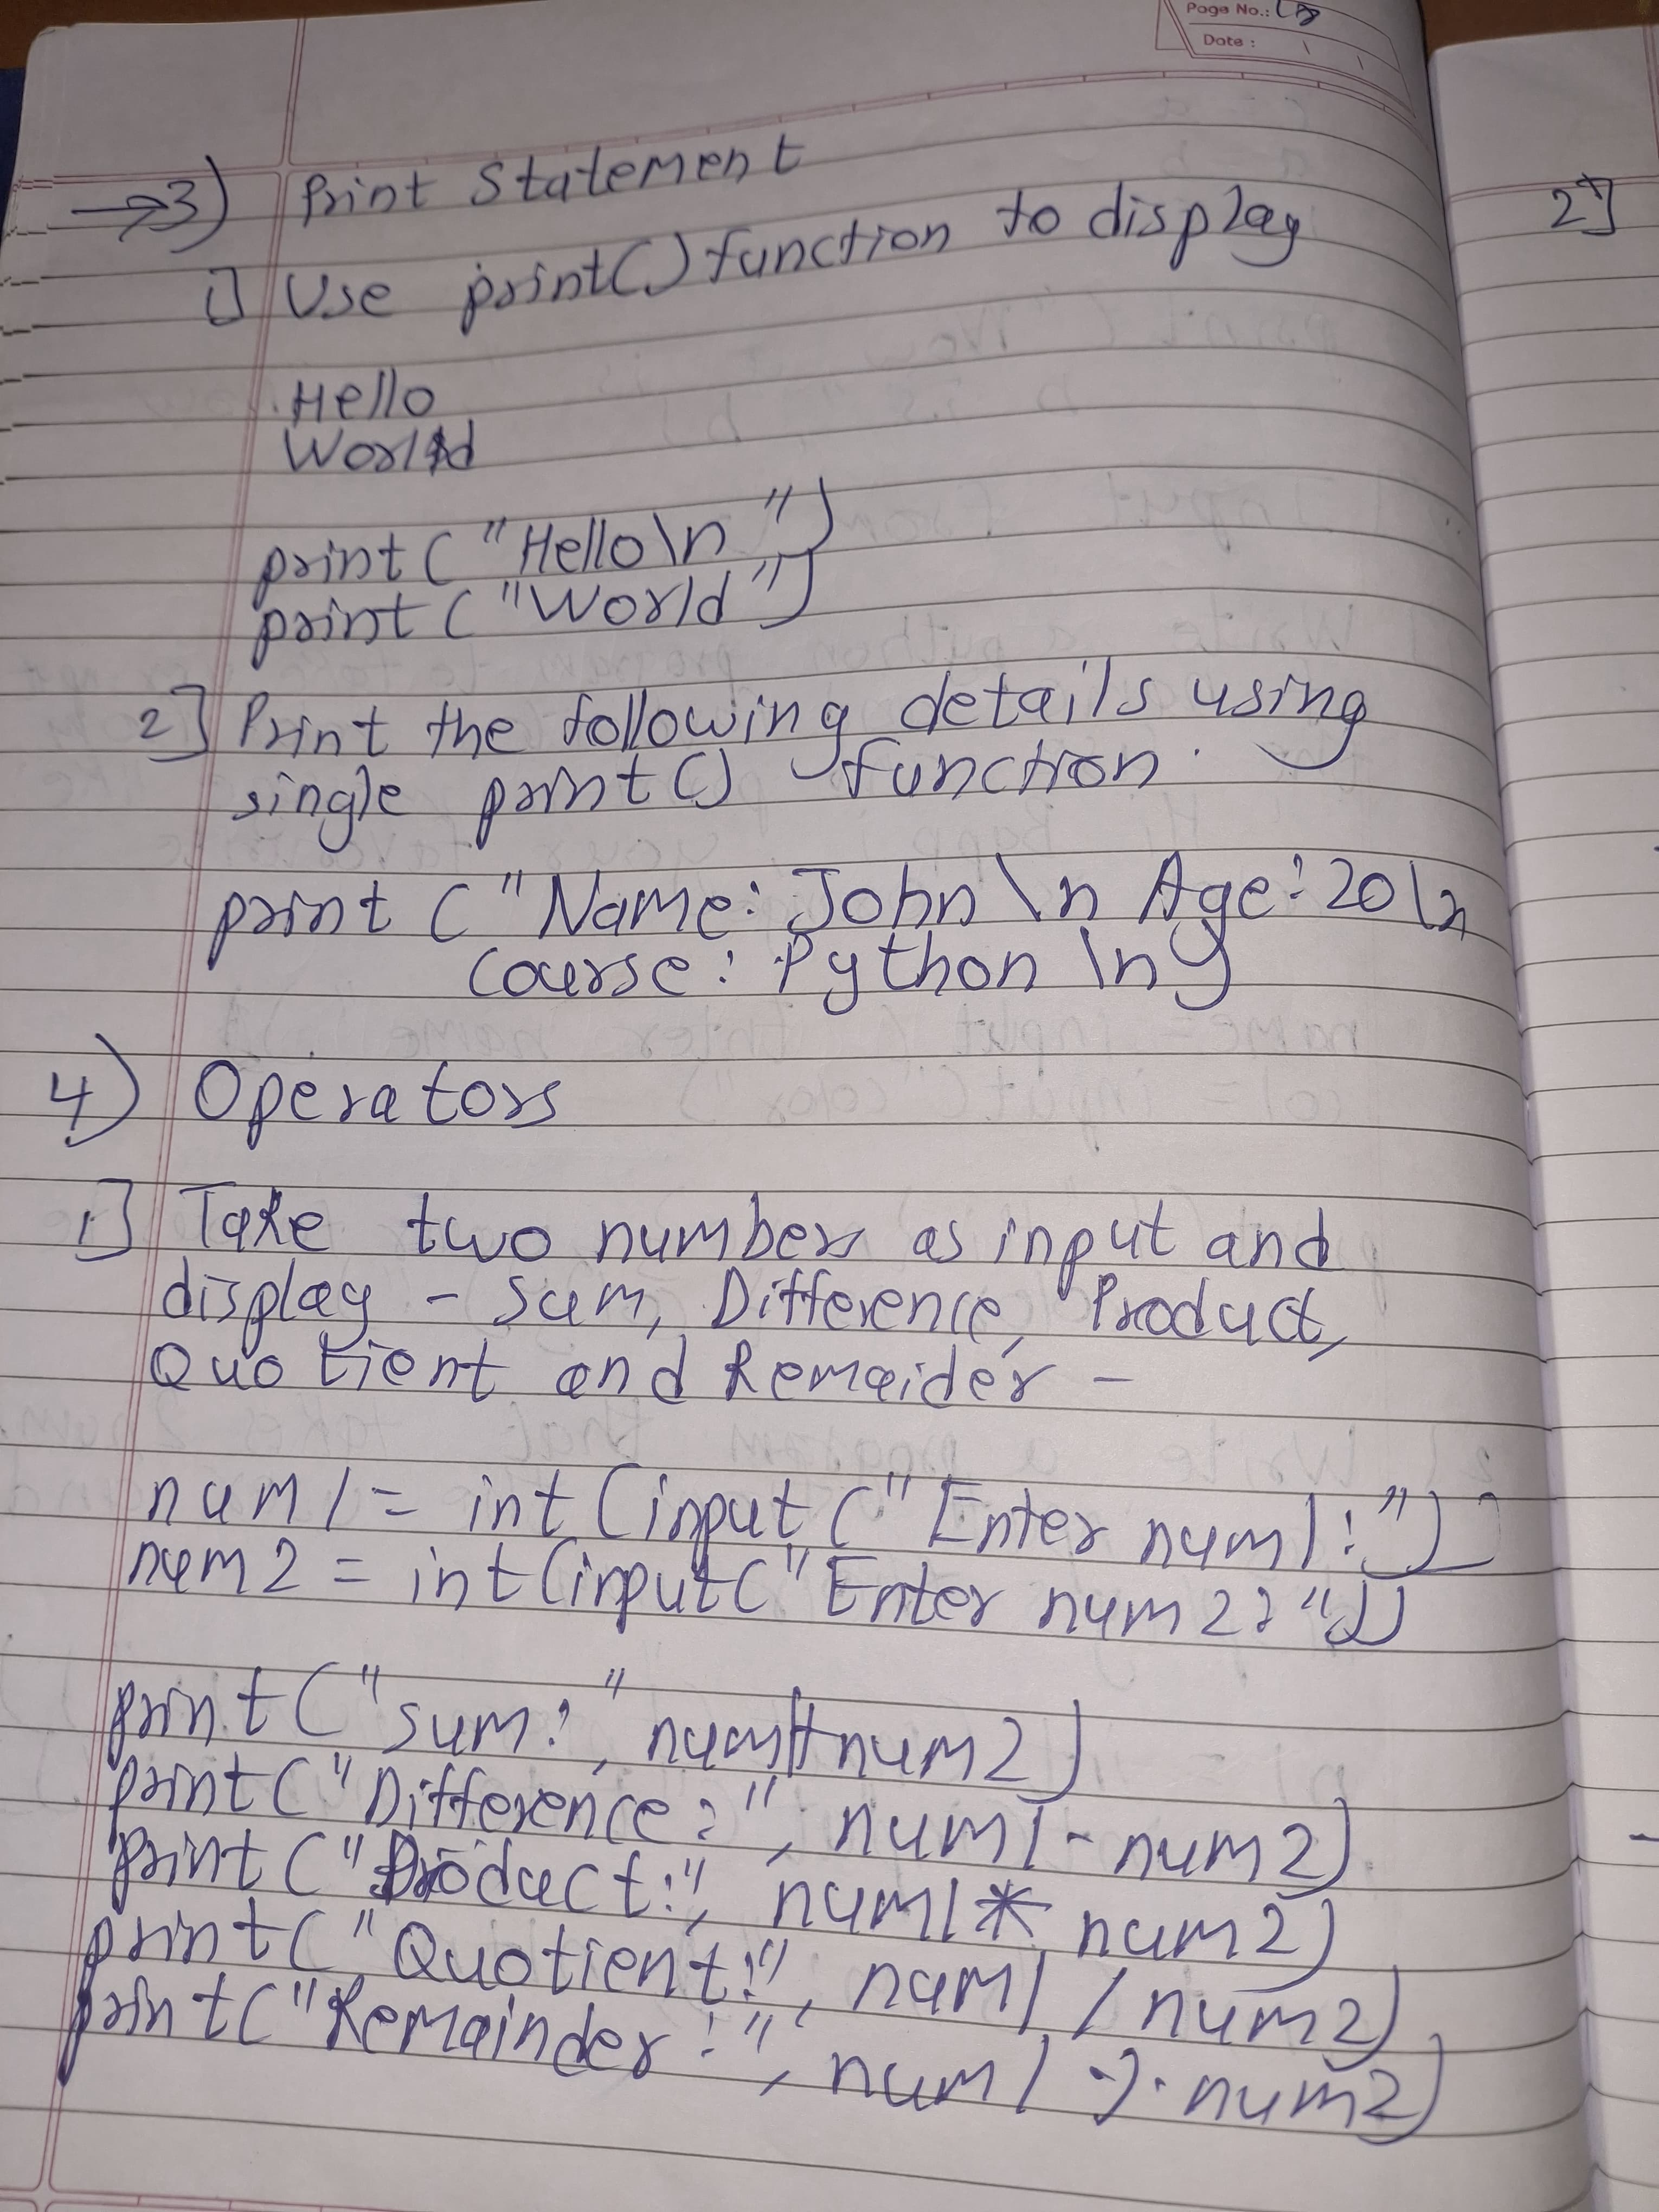 Page No.:
Date :
→3) Print Statement
1] Use print() function to display
Hello
World
print ("Hello\n")
print ("World")
2] Print the following details using
single print() function.
print ("Name: John \n Age: 20 \n
Course: Python \n")
4) Operators
1] Take two numbers as input and
display - Sum, Difference, Product,
Quotient and Remaider -
num1 = int (input ("Enter num1:"))
num2 = int(input("Enter num2:"))
print ("sum:", num1+num2)
print ("Difference:", num1 - num2)
print ("Product:", num1 * num2)
print ("Quotient:", num1 / num2)
print ("Remainder:", num1 % num2)
2]